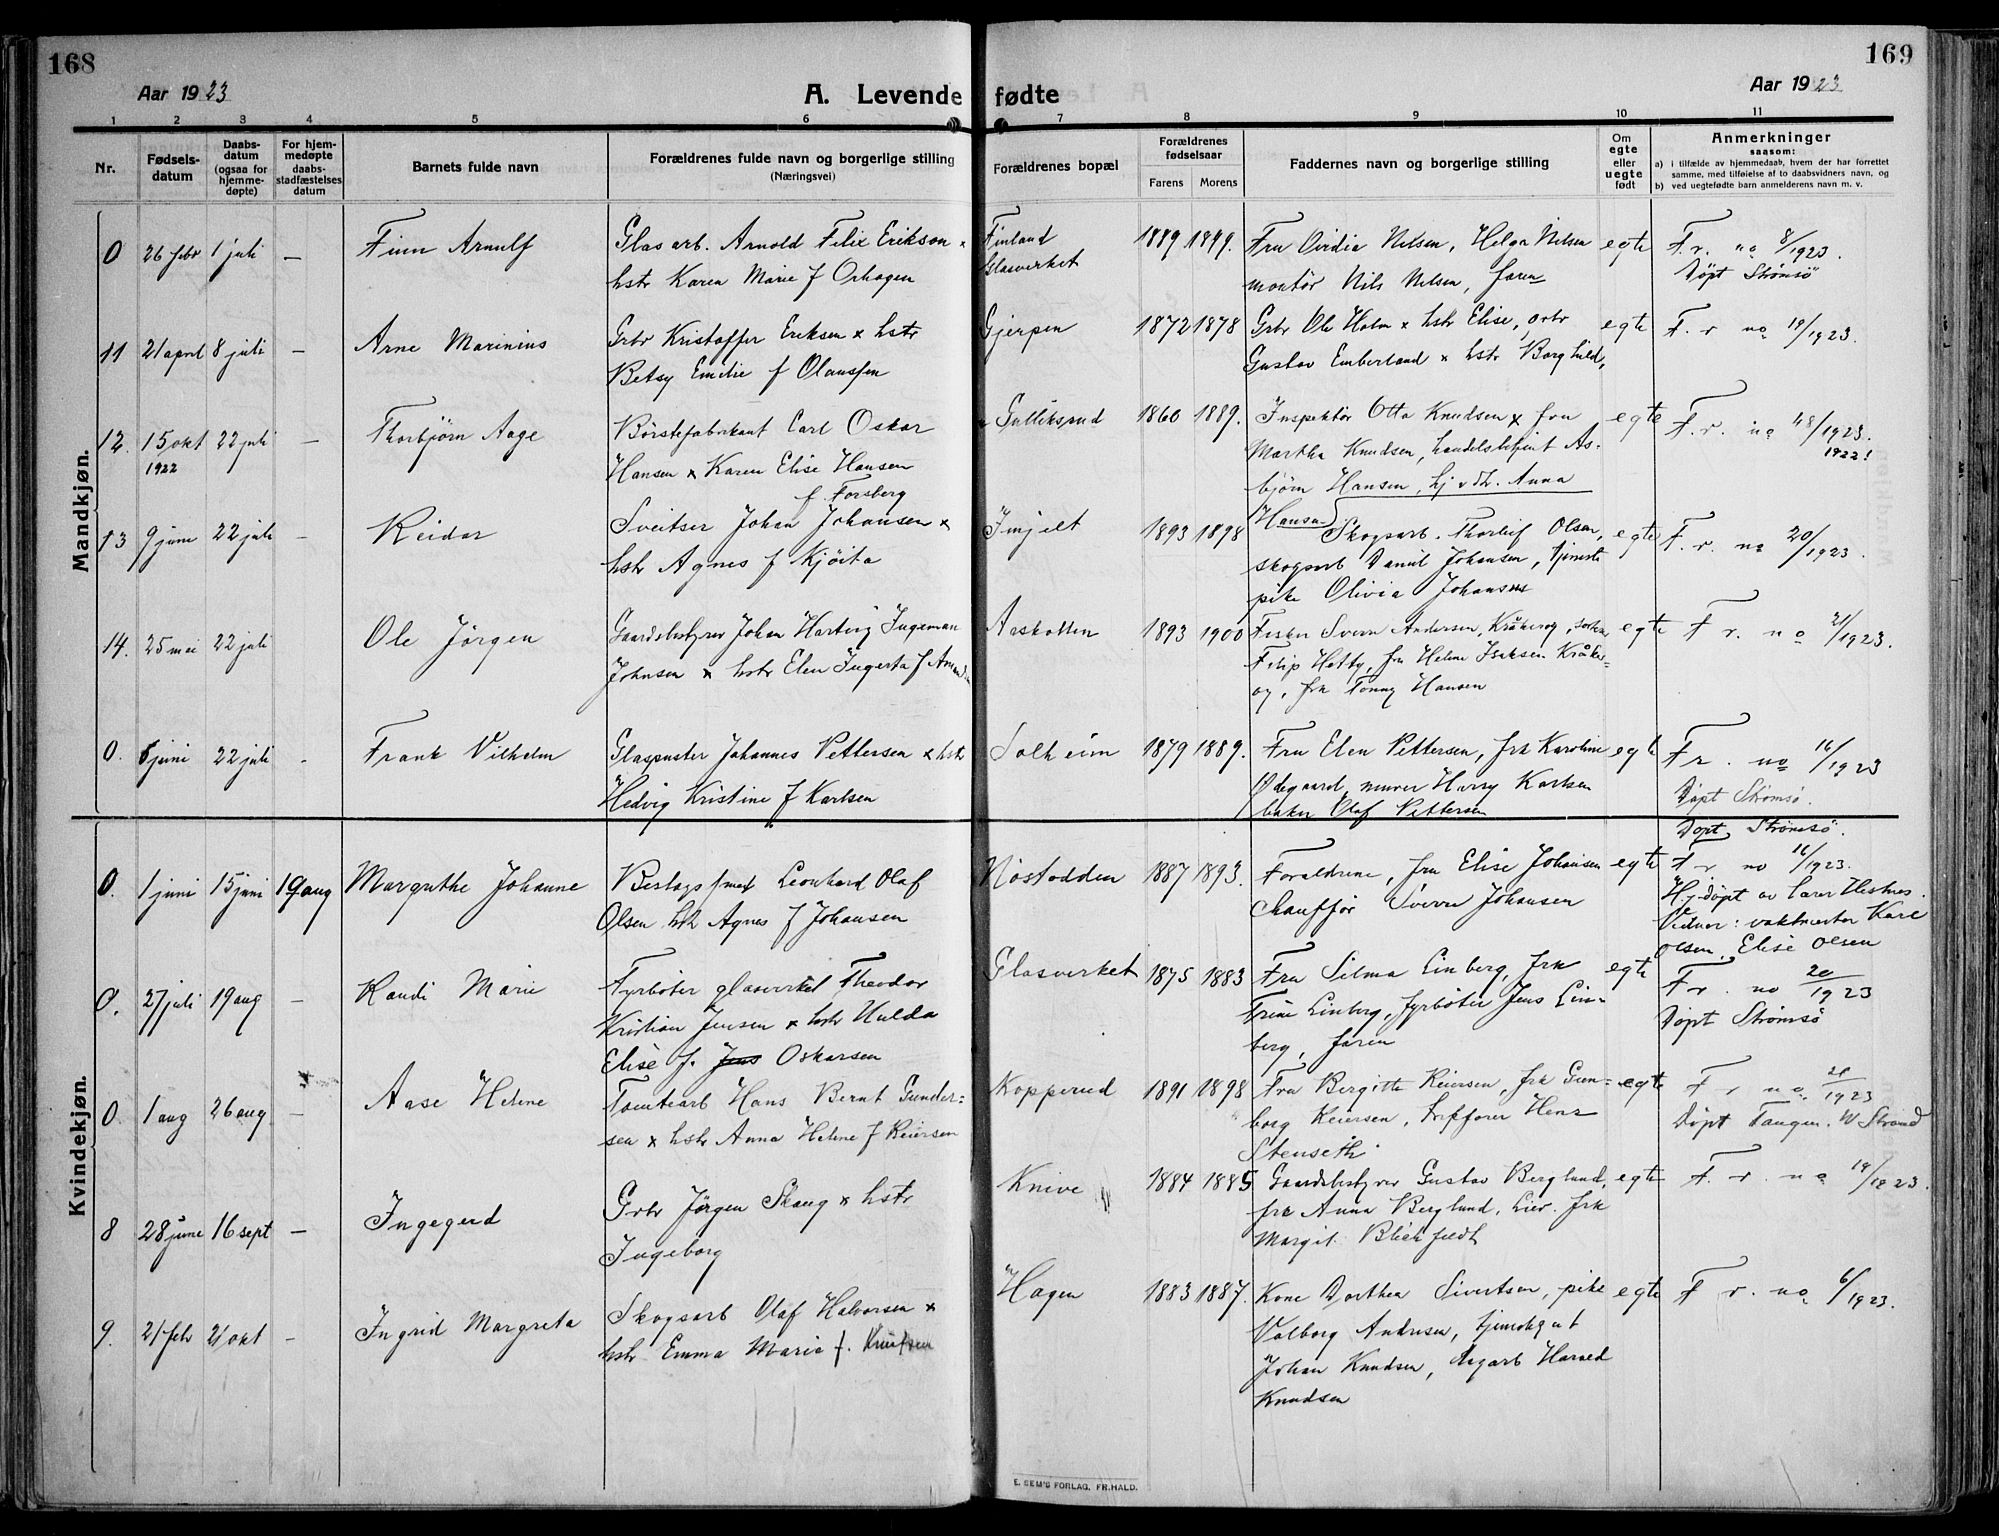 168
169
Aar 1923
A. Levende fødte
Aar 1923
1 2 3 4 5 6 7 8 9 10 11
Nr.
Fødsels-
datum
Daabs-
datum
(ogsaa for
hjemme-
døpte)
For hjem-
medøpte
daabs-
stadfæstelses
datum
Barnets fulde navn
Forældrenes fulde navn og borgerlige stilling
(Næringsvei)
Forældrenes bopæl
Forældrenes
fødselsaar
Farens Morens
Faddernes navn og borgerlige stilling
Om
egte
eller
uegte
født
Anmerkninger
saasom:
a) i tilfælde av hjemmedaab, hvem der har forrettet
samme, med tilføielse af to daabsvidners navn, og
b) ved uegtefødte barn anmelderens navn m. v.
Mandkjøn.
0 26 febr 1 juli – Finn Arnulf
Glasarb. Arnold Felix Erikson x
hstr Karen Marie f Orhagen
Finland
Glasverket
1889 1899.
Fru Ovidia Nilsen, Helga Nilsen
montør Nils Nilsen, faren
egte
F. r. no 8/1923.
Døpt Strømsø
11 21 april 8 juli – Arne Marinius
Grbr Kristoffer Eriksen x hstr
Betsy Emilie f Olaussen
Gjerpen
1872 1878
Grbr Ole Holm x hstr Elise, grbr
Gustav Emberland x hstr Borghild,
egte
F. r no 18/1923.
12. 15 okt 22 juli –
1922
Thorbjørn Aage
Børstefabrikant Carl Oskar
Hansen x Karen Elise Hansen
f. Forsberg
Gulliksrud
1860 1889.
Inspektør Otto Knudsen x fru
Martha Knudsen, handelsbetjent As-
bjørn Hansen, hj v dh. Anna
Hansen
egte
F. r. no 48/1923.
1922!
13 9 juni 22 juli – Reidar
Sveitser Johan Johansen x
hstr Agnes f Kjøita
Imjelt
1893 1898
Skogsarb. Thorleif Olsen,
skogsarb Daniel Johansen, tjeneste
pike Olivia Johansen
egte
F. r. no 20/1923.
14. 25 mei 22 juli Ole Jørgen
Gaardsbestyrer Johan Hartvig Ingeman
Johnsen x hstr Elen Ingerta f
Aaskollen
1893 1900
Fisker Sverre Andersen, Kråkerøy,
Filip Hotty, fru Helene Isaksen Kråker-
øy, frk Tonny Hansen
egte
F r. no 21/1923.
0. juni 22 juli - Frank Vilhelm
Glaspuster Johannes Pettersen x hstr
Hedvig Kristine f Karlsen
Solheim
1879 1889.
Fru Elen Pettersen, frk Karoline
Ødegaard, murer Harry Karlsen
baker Olaf Pettersen
egte
F r. no 16/1923
Døpt Strømsø.
Kvindekjøn.
0. 1 juni 15 juni 19 aug Margrethe Johanne
Beslagsmed Leonhard Olaf
Olsen hstr Agnes f Johansen
Nøstodden
1887 1893.
Foreldrene, fru Elise Johansen
Chauffør Sverre Johansen
egte
Døpt Strømsø.
F r no 16/1923.
Hj.døpt av lærer Hestnes.
Vidner: vaktmester Kare
Olsen, Elise Olsen
0. 27 juli 19 aug – Randi Marie
Fyrbøter glasverket Theodor
Kristian Jensen x hstr Hulda
Elise f. Jens Oskarsen
Glasverket
1875 1883
Fru Silma Linberg, frk
Trine Linberg, fyrbøter Jens Lin-
berg, faren
egte
F r. no 20/1923
Døpt Strømsø
0 1 aug 26 aug – Aase Helene
Tomtearb Hans Bernt Gunder-
sen x hstr Anna Helene f Reiersen
Kopperud
1891 1898
Fru Bergitte Reiersen, frk Gun-
borg Reiersen, skipsfører Hans
Stenseth
egte
F r no 21/1923
Døpt Tangen. W Strand
8 28 june 16 sept – Ingegerd
Grbr Jørgen Skaug x hstr
Ingeborg
Knive
1884 1885
Gaardsbestyrer Gustav Berglund,
frk Anna Berglund, Lier. frk
Margit Blichfeldt
egte
F. r. no 19/1923.
9. 21 febr 21 okt – Ingrid Margreta
Skogsarb Olaf Halvorsen x
hstr Emma Marie f. Knutsen
Hagen
1883 1887.
Kone Dorthea Sivertsen, pike
Valborg Andresen, tjenestegut
Johan Knudsen, Harald
Knudsen
egte
F r. no 6/1923.
E. SEM'S FORLAG, FR.HALD.